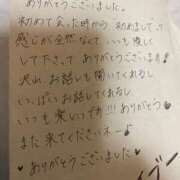 ありがとうございました。
初めて会った時から初めましって
感じが全然なくていつも優しく
して下さってありがとうございます
沢山お話しも聞いてくれるし
いっぱいお話してくれるし
いつも楽しいです!!!ありがとう♥
また来てくださいネー♪
♥ありがとうございました♥